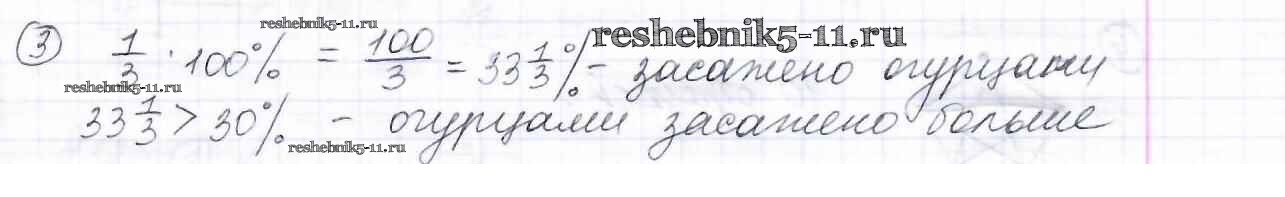 reshebnik5-11.ru
③ 1/3 · 100% = 100/3 = 33 1/3 % - засажено огурцами
reshebnik5-11.ru
reshebnik5-11.ru
33 1/3 > 30% - огурцами засажено больше
reshebnik5-11.ru